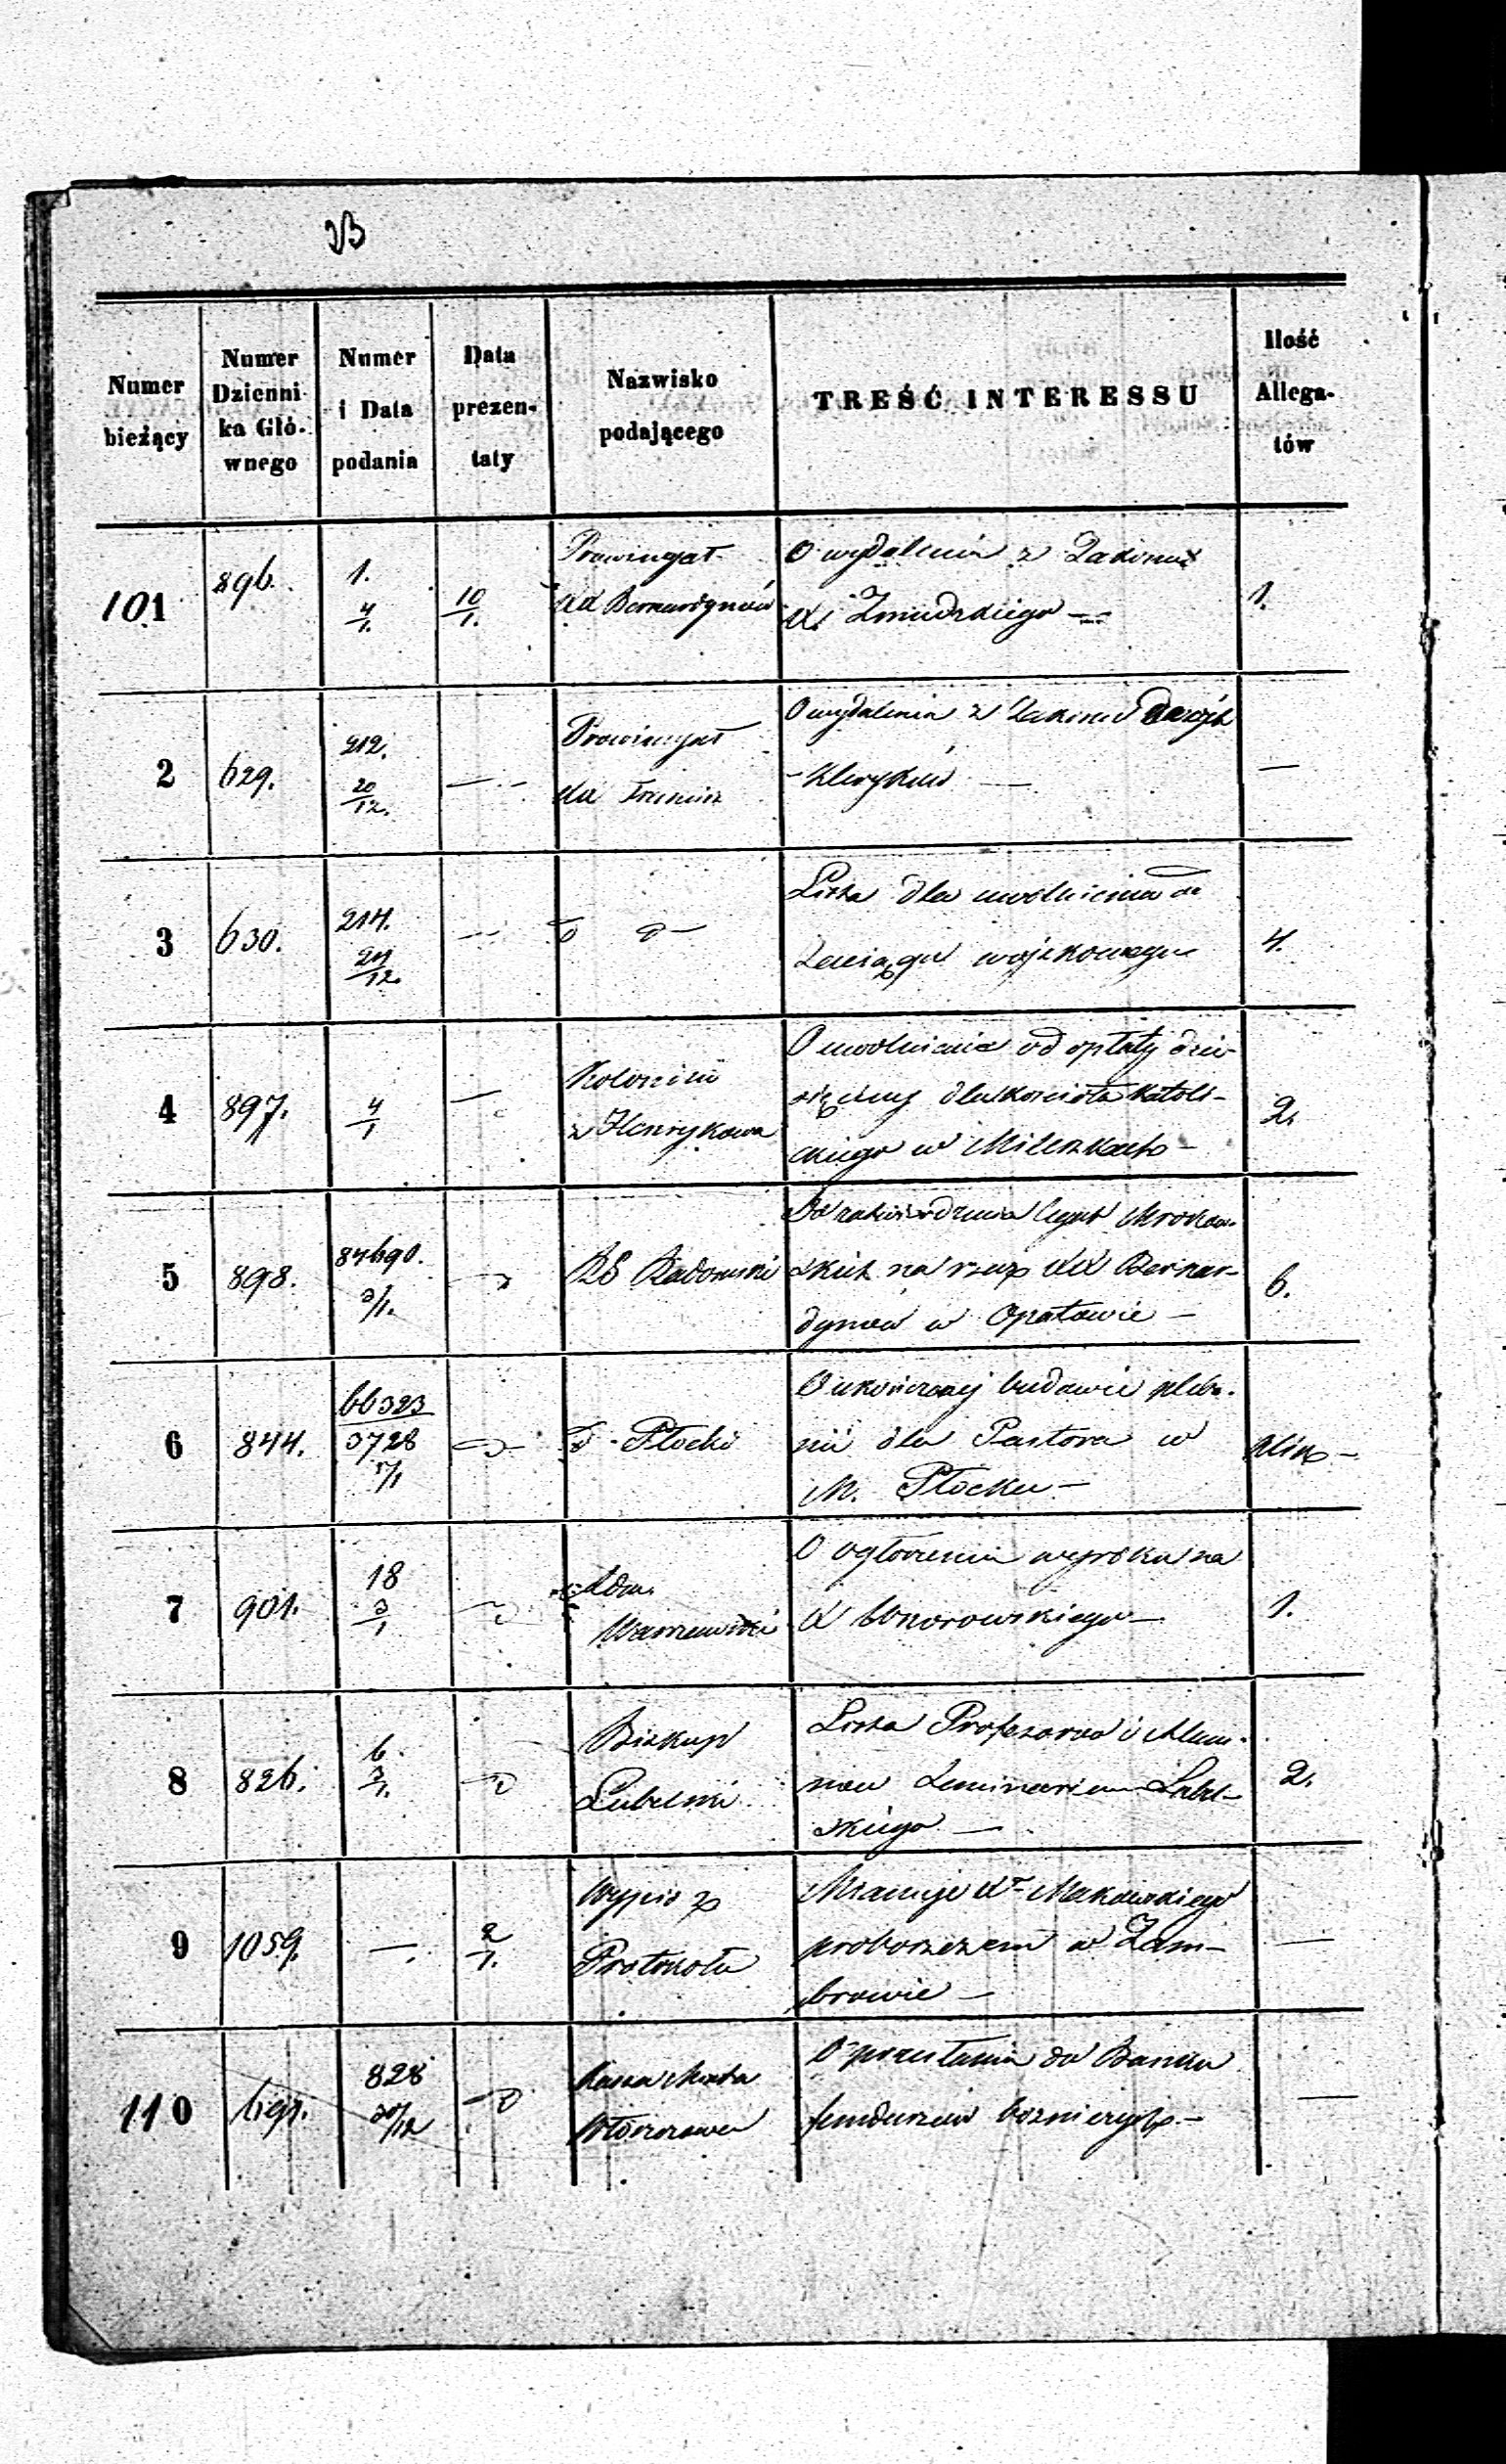 Numer bieżący
Numer Dzienni-ka Głó-wnego
Numer i Data podania
Data prezen-taty
Nazwisko podającego
TREŚĆ INTERESSU
Ilość Allega-tów
101
896.
1.
4/1.
10/1.
Prowincyał
XX Bernardynów
O wydalenia z Zakonu
X. Żmudzkiego —
1.
2
629.
212.
20/12.
—
Prowincyał
O wydalenia z Zakonu dwóch
Kleryków —
—
3
630.
214.
24/12.
—
Lista dla uwolnienia od
Zaciągu wojskowego
4.
4
897.
4/1
—
Koloniści
z Henrykowa
O uwolnienie od opłaty dzie-
sięciny dla kościoła katoli-
ckiego w Mileszkach —
2.
5
898.
84690.
3/1.
RG Radomski
Do zatwierdzenia legat
skich na rzecz XX Bernar-
dynów w Opatowie —
6.
6
844.
66323
3728
5/1
Płocki
O ukończonej budowie pleba-
nii dla Pastora w
M. Płocku —
7
901.
18
3/1
Adm.
Warszawski
O ogłoszenia wyroku na
X
1.
8
826.
6.
3/1.
Biskup
Lubelski
Lista Profesorów i Alum-
nów Seminarium Lubel-
skiego —
2.
9
1059.
—
2/1.
Wypis z
Protokołu
Mianuje Xa Makowskiego
proboszczem w Zam-
browie —
—
110
828
20/12
Kassa Miasta
Włoszczowa
O przesłania do Banku
funduszów bożniczych —
—